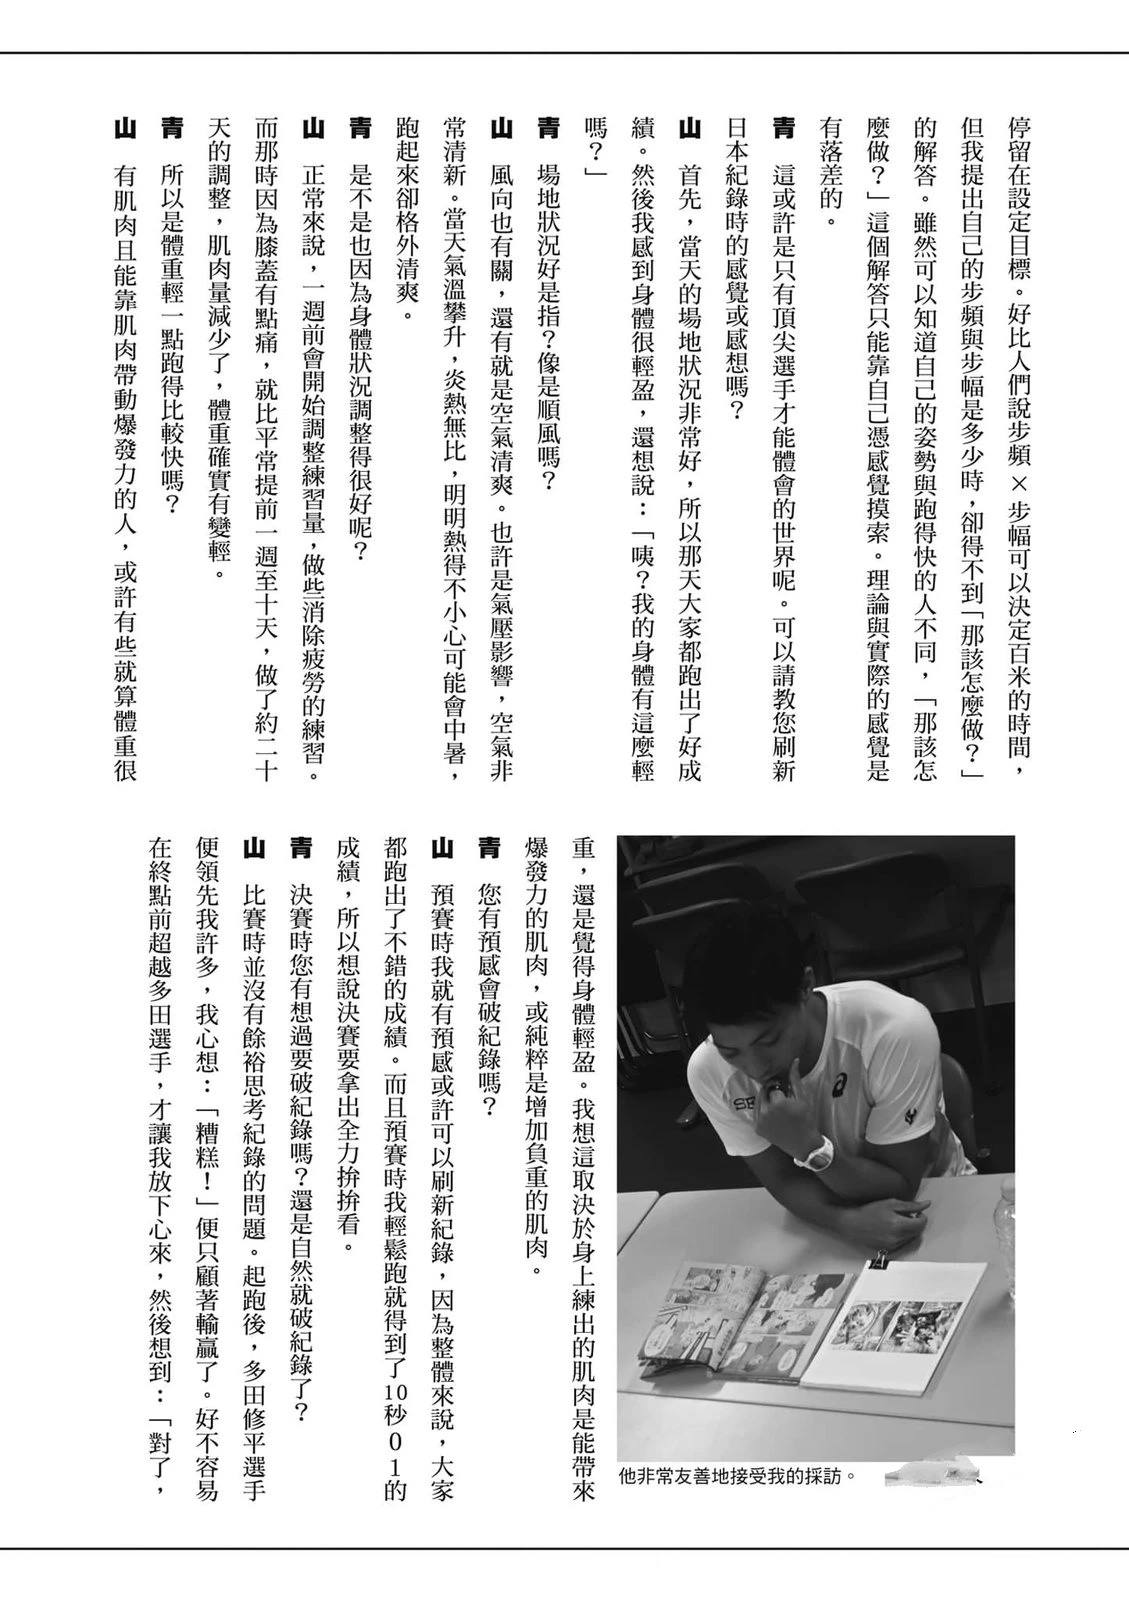 停留在設定目標。好比人們說步頻×步幅可以決定百米的時間，
但我提出自己的步頻與步幅是多少時，卻得不到「那該怎麼做？」
的解答。雖然可以知道自己的姿勢與跑得快的人不同，「那該怎
麼做？」這個解答只能靠自己憑感覺摸索。理論與實際的感覺是
有落差的。
青　這或許是只有頂尖選手才能體會的世界呢。可以請教您刷新
日本紀錄時的感覺或感想嗎？
山　首先，當天的場地狀況非常好，所以那天大家都跑出了好成
績。然後我感到身體很輕盈，還想說：「咦？我的身體有這麼輕
嗎？」
青　場地狀況好是指？像是順風嗎？
山　風向也有關，還有就是空氣清爽。也許是氣壓影響，空氣非
常清新。當天氣溫攀升，炎熱無比，明明熱得不小心可能會中暑，
跑起來卻格外清爽。
青　是不是也因為身體狀況調整得很好呢？
山　正常來說，一週前會開始調整練習量，做些消除疲勞的練習。
而那時因為膝蓋有點痛，就比平常提前一週至十天，做了約二十
天的調整，肌肉量減少了，體重確實有變輕。
青　所以是體重輕一點跑得比較快嗎？
山　有肌肉且能靠肌肉帶動爆發力的人，或許有些就算體重很
重，還是覺得身體輕盈。我想這取決於身上練出的肌肉是能帶來
爆發力的肌肉，或純粹是增加負重的肌肉。
青　您有預感會破紀錄嗎？
山　預賽時我就有預感或許可以刷新紀錄，因為整體來說，大家
都跑出了不錯的成績。而且預賽時我輕鬆跑就得到了10秒01的
成績，所以想說決賽要拿出全力拚拚看。
青　決賽時您有想過要破紀錄嗎？還是自然就破紀錄了？
山　比賽時並沒有餘裕思考紀錄的問題。起跑後，多田修平選手
便領先我許多，我心想：「糟糕！」便只顧著輸贏了。好不容易
在終點前超越多田選手，才讓我放下心來，然後想到：「對了，
他非常友善地接受我的採訪。